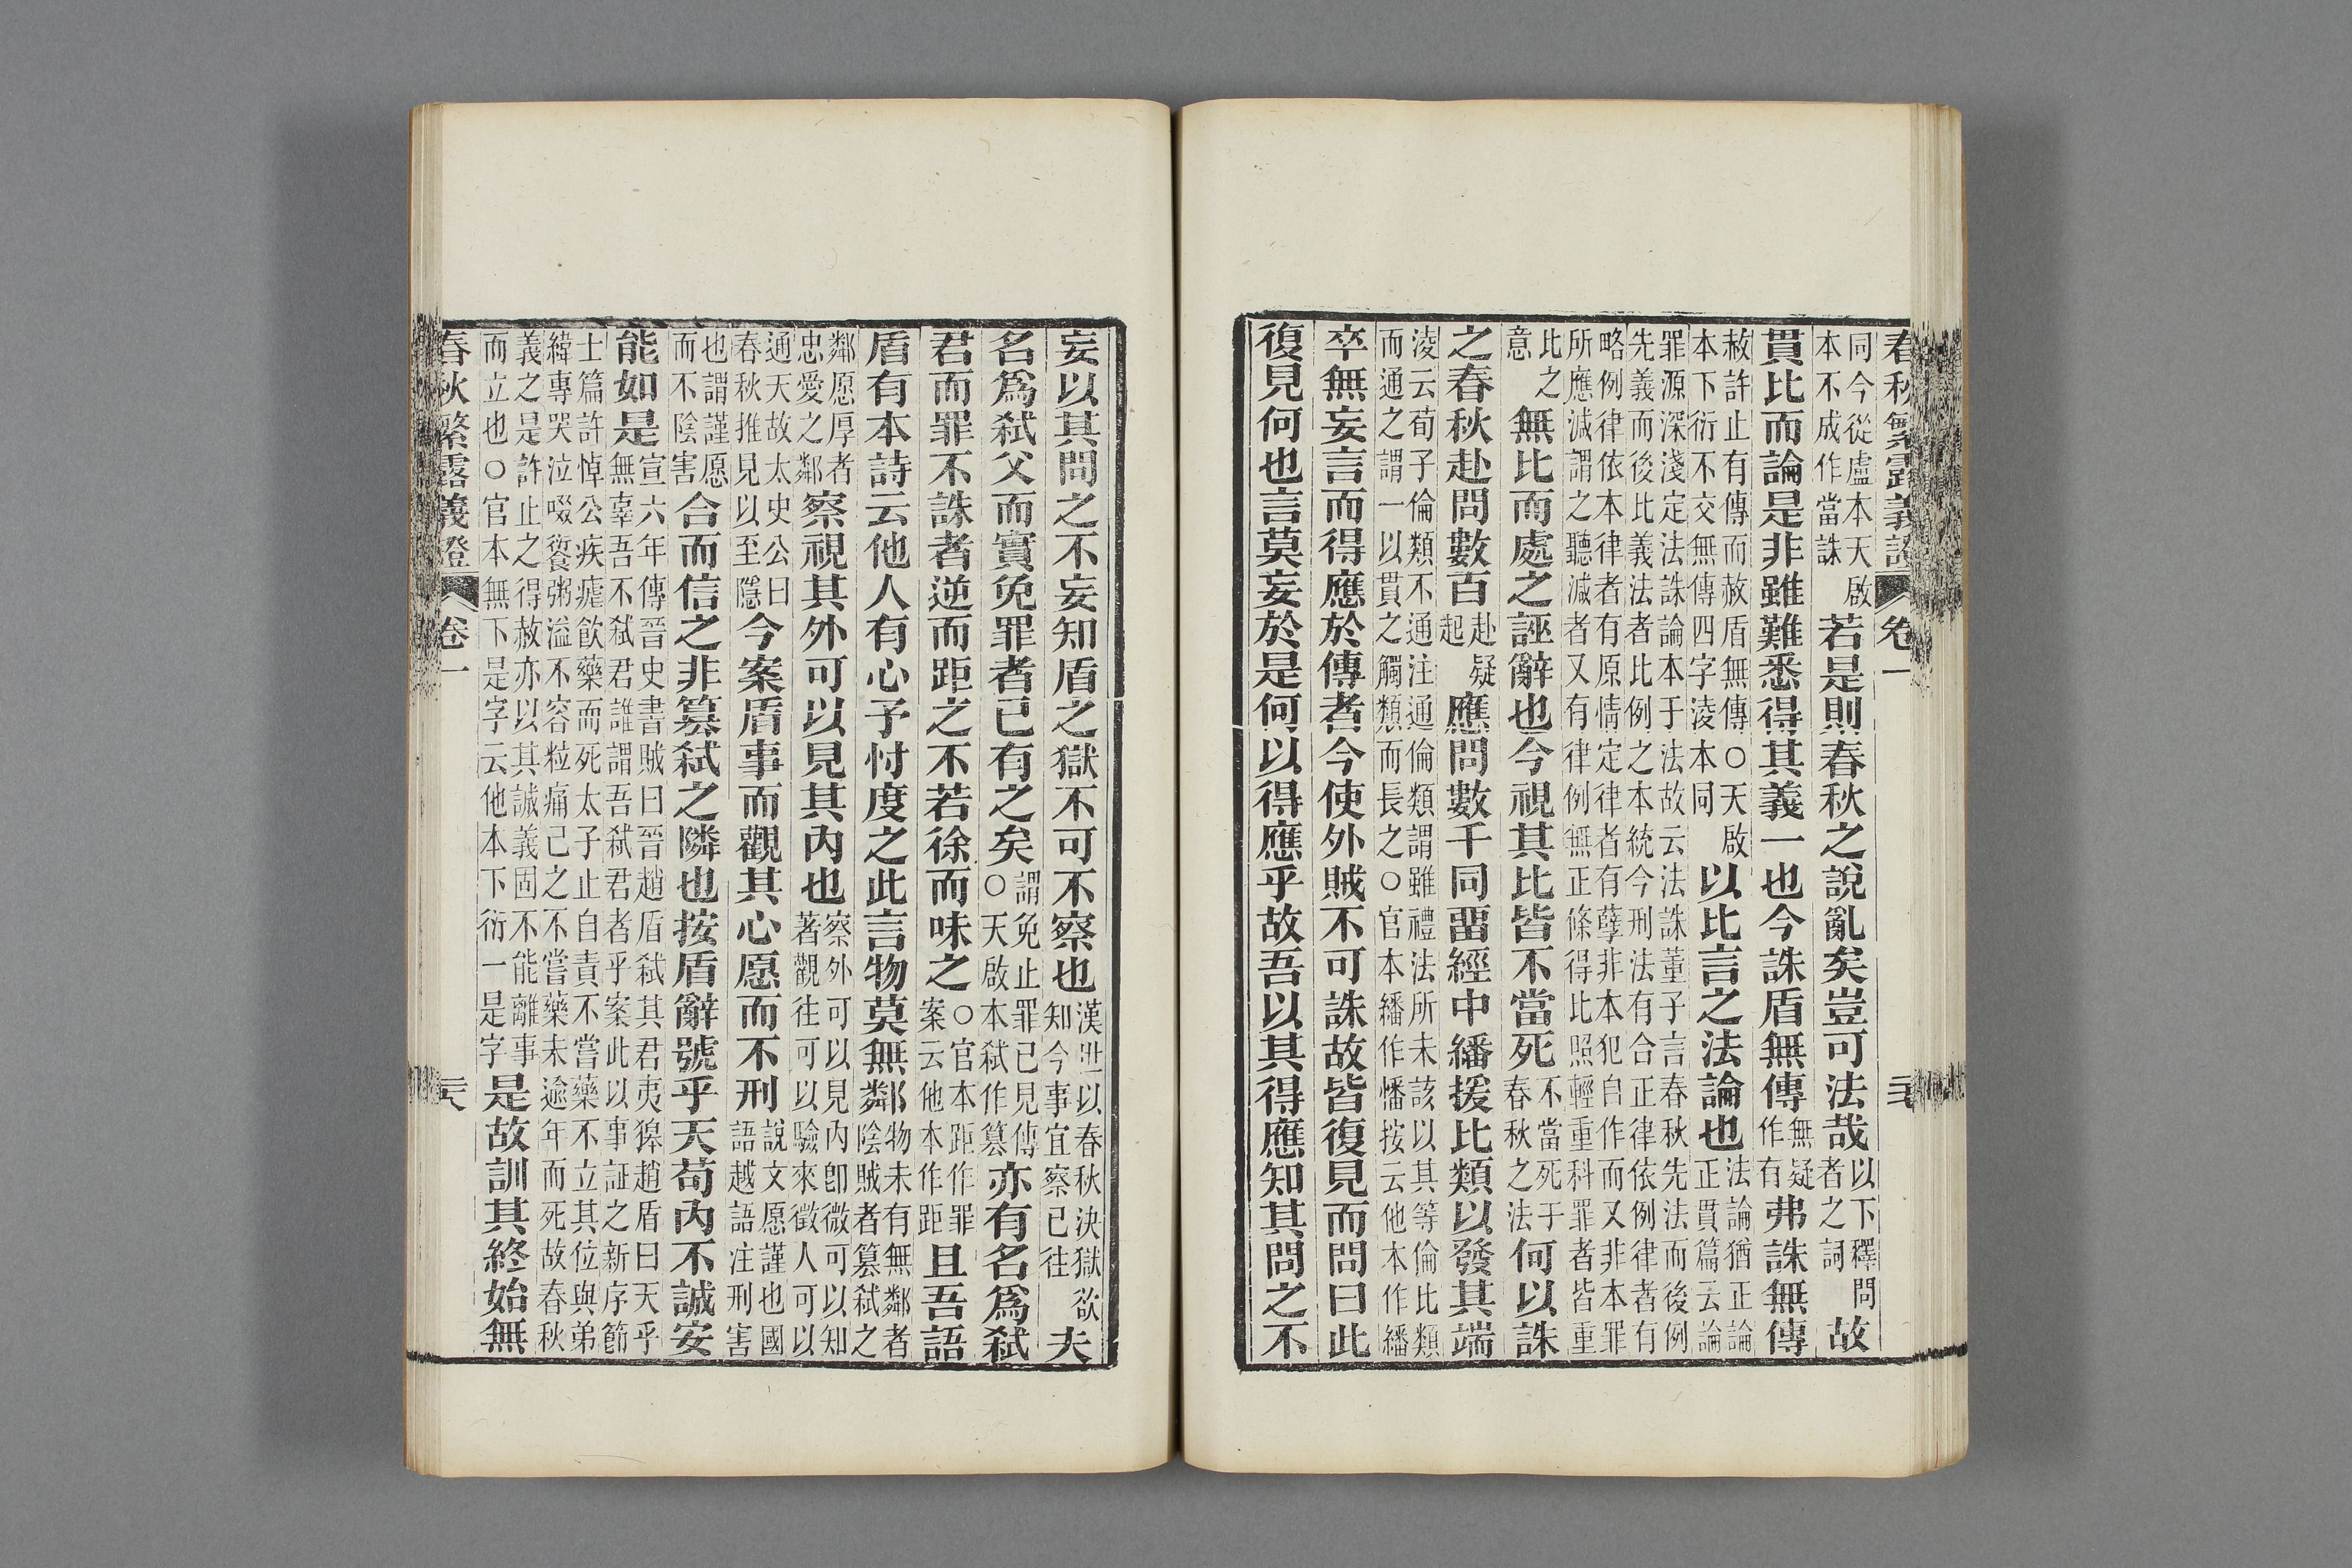 春秋繁露義證 卷一
同今從盧本天啟
本不成作當誅
若是則春秋之說亂矣豈可法哉
以下釋問
者之詞
故
貫比而論是非雖難悉得其義一也今誅盾無傳
無疑
作有
弗誅無傳
赦許止有傳而赦盾無傳○天啟
本下衍不交無傳四字淩本同
以比言之法論也
法論猶正論
正貫篇云論
罪源深淺定法誅論本于法故云法誅董子言春秋先法而後例
先義而後比義法者比例之本統今刑法有合正律依例律者有
略例律依本律者有原情定律者有孽非本犯自作而又非本罪
所應減謂之聽減者又有律例無正條得比照輕重科罪者皆重
比之
意
無比而處之誣辭也今視其比皆不當死
不當死于
春秋之法
何以誅
之春秋赴問數百
赴疑
起
應問數千同畱經中繙援比類以發其端
淩云荀子倫類不通注通倫類謂雖禮法所未該以其等倫比類
而通之謂一以貫之觸類而長之○官本繙作幡按云他本作繙
卒無妄言而得應於傳者今使外賊不可誅故皆復見而問曰此
復見何也言莫妄於是何以得應乎故吾以其得應知其問之不
妄以其問之不妄知盾之獄不可不察也
漢世以春秋決獄欲
知今事宜察已往
夫
名爲弑父而實免罪者已有之矣
謂免止罪已見傳
○天啟本弑作篡
亦有名爲弑
君而罪不誅者逆而距之不若徐而味之
○官本距作罪
案云他本作距
且吾語
盾有本詩云他人有心予忖度之此言物莫無鄰
物未有無鄰者
陰賊者篡弑之
鄰愿厚者
忠愛之鄰
察視其外可以見其內也
察外可以見內卽微可以知
著觀往可以驗來徵人可以
通天故太史公曰
春秋推見以至隱
今案盾事而觀其心愿而不刑
說文愿謹也國
語越語注刑害
也謂謹愿
而不陰害
合而信之非篡弑之隣也按盾辭號乎天苟內不誠安
能如是
宣六年傳晉史書賊曰晉趙盾弑其君夷獆趙盾曰天乎
無辜吾不弑君誰謂吾弑君者乎案此以事証之新序節
士篇許悼公疾瘧飲藥而死太子止自責不嘗藥不立其位與弟
緯專哭泣啜餰粥嗌不容粒痛己之不嘗藥未逾年而死故春秋
義之是許止之得赦亦以其誠義固不能離事
而立也○官本無下是字云他本下衍一是字
是故訓其終始無
春秋繁露義證 卷一